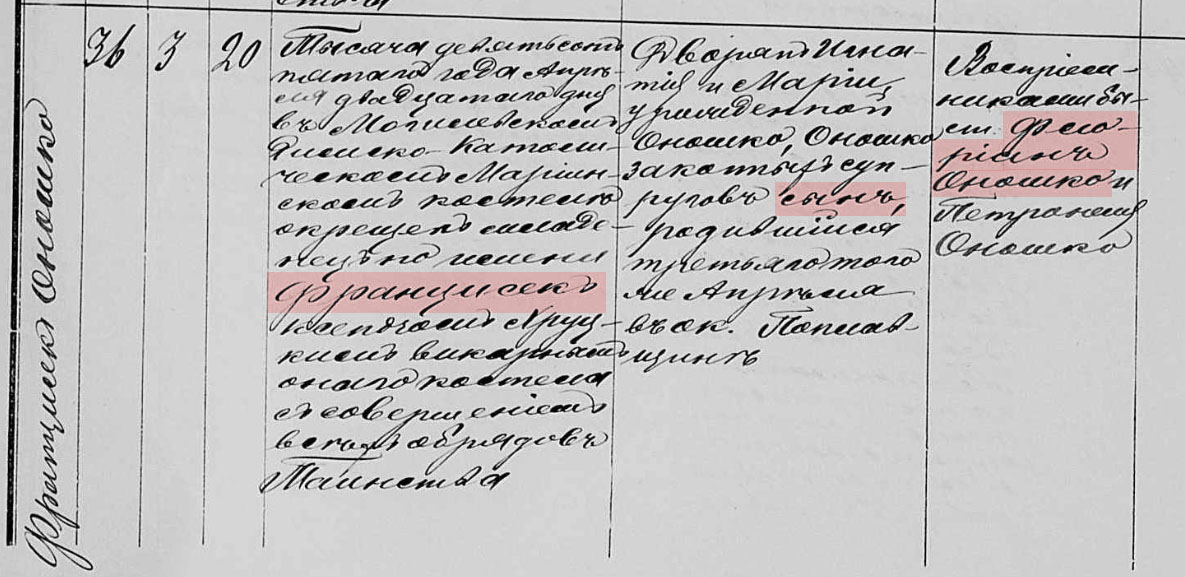 Францишекъ Оношко
36
3
20
Тысяча девятьсотъ
пятаго года Апрѣ-
ля двадцатаго дня
въ Могилевскомъ
Римско-Католи-
ческомъ Маріин-
скомъ костелѣ
окрещенъ младе-
нецъ по имени
Францишекъ
ксендзомъ Хруц-
кимъ викарнымъ
онаго костела
съ совершеніемъ
всѣхъ обрядовъ
Таинства
Дворянъ Игна-
тія и Маріи,
урожденной
Оношко, Оношко
законныхъ суп-
руговъ сынъ,
родившійся
третьяго того
же Апрѣля
въ ок. Поплав-
щинѣ
Воспріем-
никами бы-
ли Фло-
ріанъ
Оношко и
Петронелія
Оношко